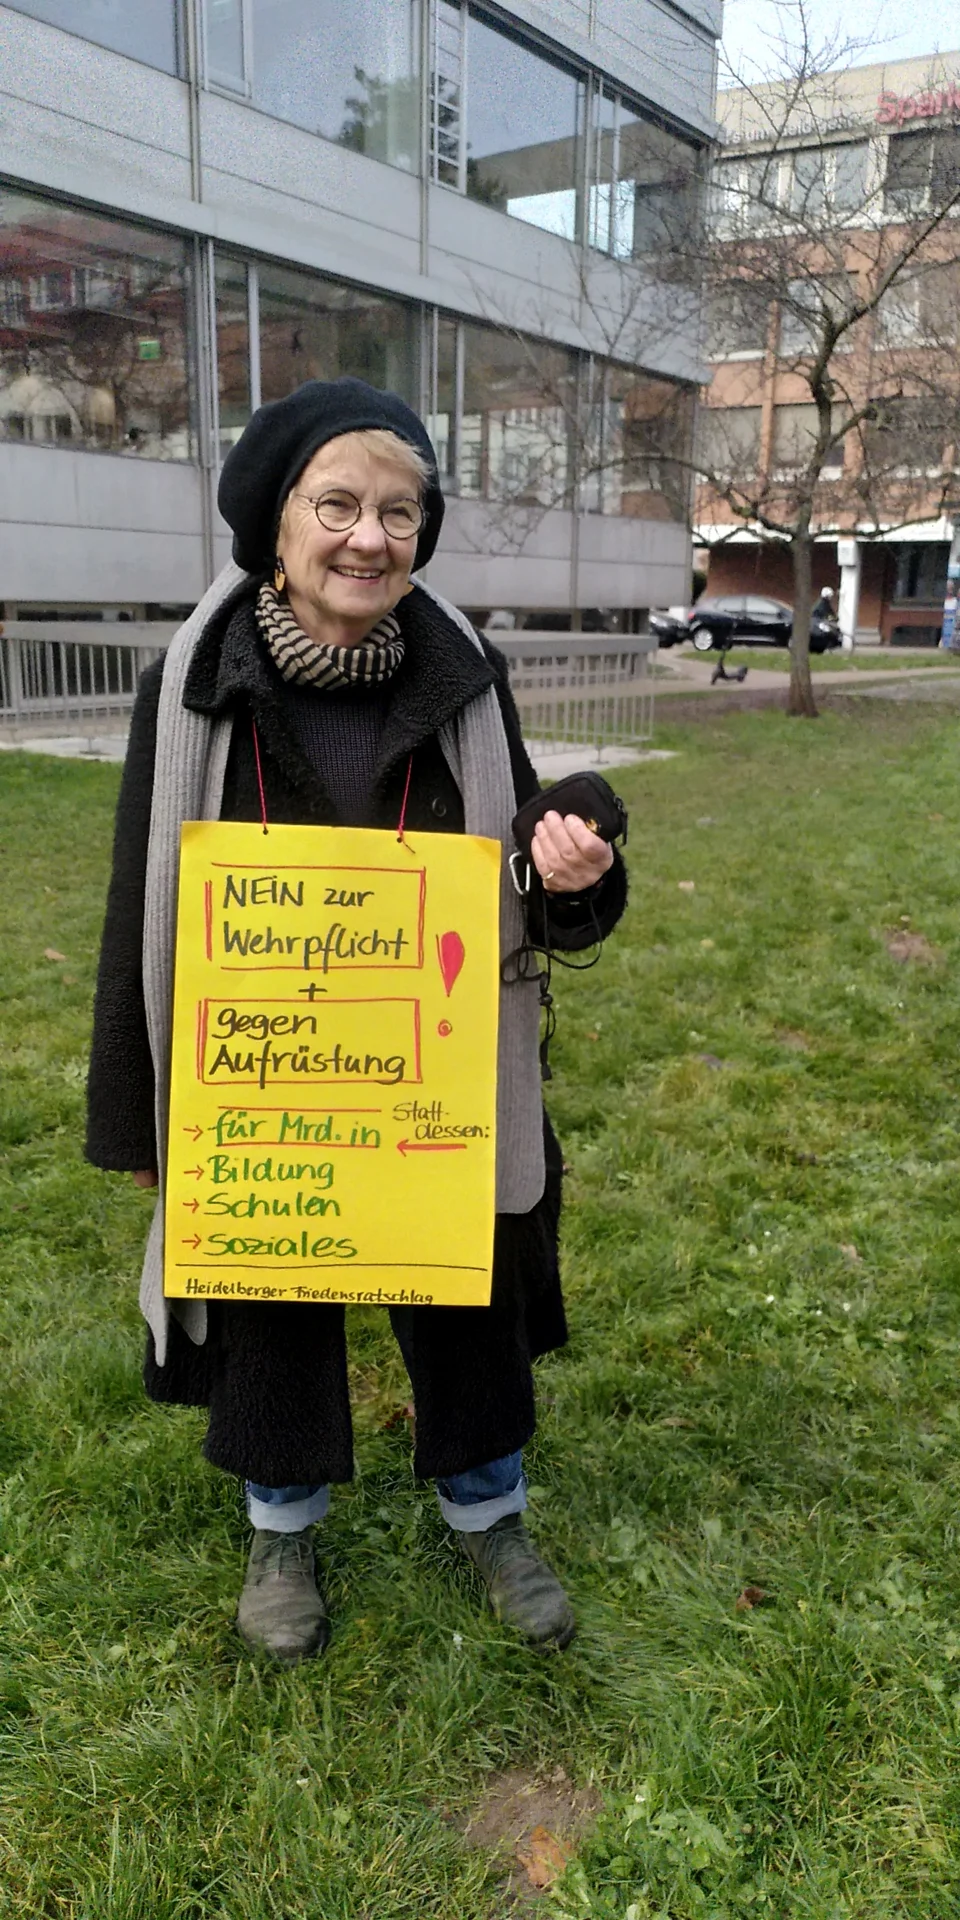 Spark
NEIN zur
Wehrpflicht
+
gegen
Aufrüstung
!
Statt-
dessen:
→ für Mrd. in
→ Bildung
→ Schulen
→ Soziales
Heidelberger Friedensratschlag